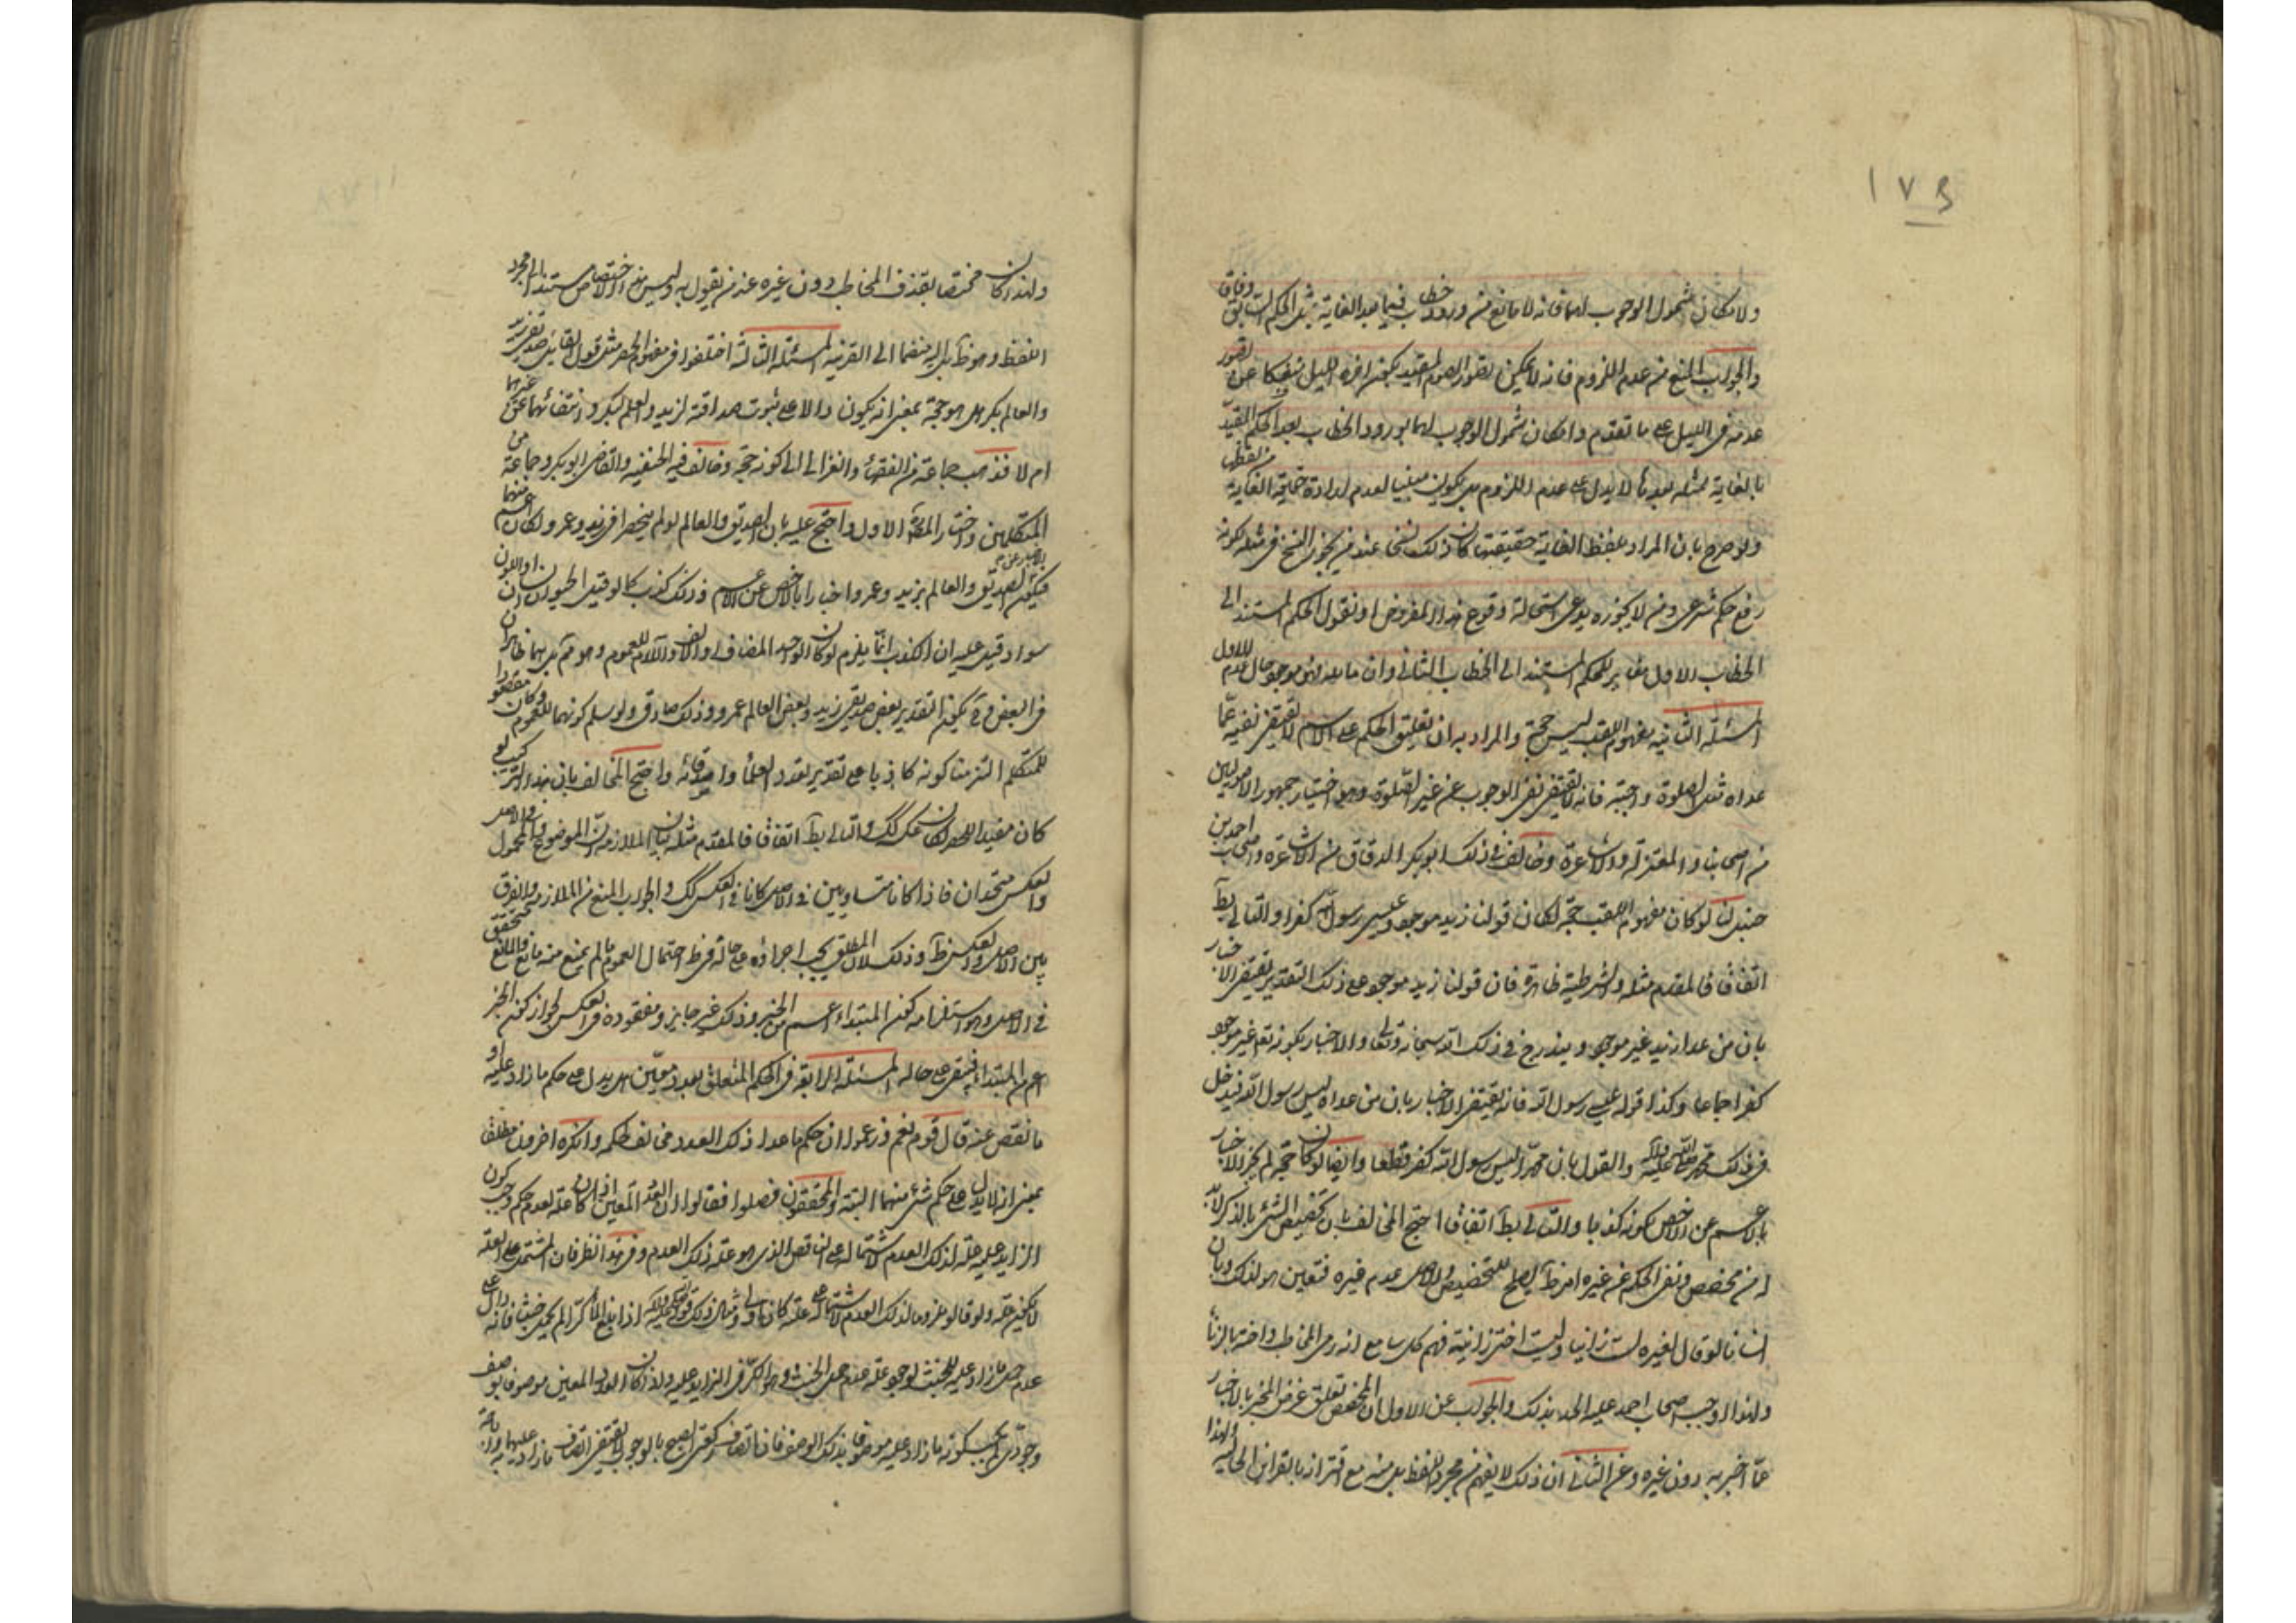 ١٧٩
ولامكان شمول الوجوب لهما فانه لا مانع من ورود خطاب فيما بعد الغاية بمثل الحكم السابق وفاق
والجواب المنع من عدم اللزوم فانه لا يمكن تصور الصوم المقيد بكون اخره الليل منفكا عن تصور
عدمه فى الليل على ما تقدم وامكان شمول الوجوب لهما بورود الخطاب بعد الحكم المقيد
بالغاية بمثله بعدها لا يدل على عدم اللزوم بل يكون مبنيا لعدم ارادة حقيقة الغاية من لفظها
ولو صرح بان المراد بلفظ الغاية حقيقتها كان ذلك نسخا عند من يجوز النسخ فى مثله لكونه
رفع حكم شرعى ومن لا يجوزه يدعى استحالة وقوع هذا المفروض او نقول الحكم المستند الى
الخطاب الاول مغاير للحكم المستند الى الخطاب الثانى وان ما بعد فهو موجود حال عدم الاول
المسئلة الثانية مفهوم اللقب ليس حجة والمراد به ان تعليق الحكم على الاسم لا يقتضى نفيه عما
عداه مثل الصلوة واجبة فانه لا يقتضى نفى الوجوب عن غير الصلوة وهو اختيار جمهور الاصوليين
من اصحابنا والمعتزلة والاشاعرة وخالف فى ذلك ابو بكر الدقاق من الاشاعرة واصحاب احمد بن
حنبل لنا لو كان مفهوم اللقب حجة لكان قولنا زيد موجود وعيسى رسول الله كفرا والتالى بط
اتفاقا فالمقدم مثله والشرطية ظاهرة فان قولنا زيد موجود على ذلك التقدير يقتضى الاخبار
بان من عدا زيد غير موجود ويندرج فى ذلك الله سبحانه وتعالى والاخبار بكونه تعالى غير موجود
كفر اجماعا وكذا قوله عيسى رسول الله فانه يقتضى الاخبار بان من عداه ليس رسول الله فيدخل
فى ذلك محمد صلى الله عليه وآله والقول بان محمدا ليس رسول الله كفر قطعا وايضا لو كان حجة لم يجز الاخبار
بالاعم عن الاخص لكونه كذبا والتالى بط اتفاقا احتج المخالف بان تخصيص الشئ بالذكر لابد
له من مخصص ونفى الحكم عن غيره امر ظ يصلح للتخصيص والاصل عدم غيره فتعين هو لذلك وبان
انسانا لو قال لغيره لست زانيا وليست اختى زانية فهم كل سامع انه رمى المخاطب واخته بالزنا
ولهذا اوجب اصحاب احمد عليه الحد بذلك والجواب عن الاول ان المخصص تعلق غرض المخبر بالاخبار
عما اخبر به دون غيره وعن الثانى ان ذلك لا يفهم من مجرد اللفظ بل منه مع اقترانه بالقراين الحالية ولهذا
ولهذا كان مختصا بقذف المخاطب دون غيره عند من يقول به وليس هذا الاختصاص مستندا الى مجرد
اللفظ وهو ظ بل اليه منضما الى القرنية المسئلة الثالثة اختلفوا فى مفهوم الحصر مثل قول القايل صديقى زيد
والعالم بكر هل هو حجة بمعنى انه يكون دالا على ثبوت صداقته لزيد والعلم لبكر وانتفائهما عن غيرهما
ام لا فذهب جماعة من الفقهاء والغزالى الى كونه حجة وخالف فيه الحنفية والقاضى ابو بكر وجماعة من
المتكلمين واختار المصنف الاول واحتج عليه بان الصديق والعالم لو لم ينحصرا فى زيد وعمرو لكان اعم منهما
فيكون الصديق والعالم بزيد وعمرو اخبارا بالاخص عن الاعم وذلك كذب كما لو قيل الحيوان انسان او اللون
سواد وقيل عليه ان الكذب انما يلزم لو كان الواحد المضاف والالف واللام للعموم وهو مم بل هما ظاهران
فى البعض وح يكون التقدير بعض صديقى زيد وبعض العالم عمرو وذلك صادق ولو سلم كونهما للعموم وكان مقصودا
للمتكلم التزمنا كونه كاذبا على تقدير تعدد العلماء واصدقائه واحتج المخالف بان هذا التركيب لو
كان مفيدا للحصر لكان عكسه كك والتالى بط اتفاقا فالمقدم مثله بيان الملازمة ان الموضوع والمحمول فى الاصل
والعكس متحدان فاذا كانا متساويين فى الاصل كانا فى العكس كك والجواب المنع من الملازمة والفرق
بين الاصل والعكس ظ وذلك لان المطلق يجب اجراؤه على حاله فى ظ احتمال العموم ما لم يمنع منه مانع والمانع متحقق
فى الاصل وهو استلزامه كون المبتداء اعم من الخبر وذلك غير جايز ومفقود فى العكس لجواز كون الخبر
اعم من المبتداء فيبقى على حاله المسئلة الرابعة فى الحكم المتعلق بعدد معين هل يدل على حكم ما زاد عليه او
ما نقص عنه قال قوم نعم وزعموا ان حكم ما عدا ذلك العدد مخالف لحكمه وانكره اخرون مطلقا
بمعنى انه لا يدل على حكم شئ منهما البتة والمحققون فصلوا فقالوا ان العدد المعين اذا كان علة لعدم حكم وجب كون
الزايد عليه علة لذلك العدم لاشتماله على الناقص الذى هو علة ذلك العدم وفى هذا نظر فان المشتمل على العلة
لا يكون علة ولو قالوا ملزوما لذلك العدم لاشتماله على علة كان اولى ومثال ذلك قوله صلى الله عليه وآله اذا بلغ الماء كرا لم يحمل خبثا فانه دال على
عدم حمل ما زاد عليه للخبث لوجود علة عدم حمل الخبث وهو الكر فى الزايد عليه ولذا ان كان العدد المعين موصوفا بوصف
وجودى لم يجب كون ما زاد عليه موصوفا بذلك الوصف فان اتصاف ركعتى الصبح بالوجوب لا يقتضى اتصاف ما زاد عليهما به